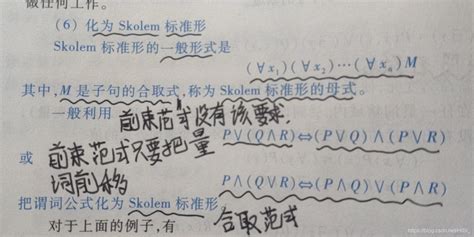 做任何工作。
(6) 化为 Skolem 标准形
Skolem 标准形的一般形式是
(∀x₁)(∀x₂)···(∀xₙ)M
其中,M 是子句的合取式,称为 Skolem 标准形的母式。
一般利用 前束范式没有该要求.
P∨(Q∧R)⇔(P∨Q)∧(P∨R)
或 前束范式只要把量
词前移
P∧(Q∨R)⇔(P∧Q)∨(P∧R)
把谓词公式化为 Skolem 标准形
合取范式
对于上面的例子,有